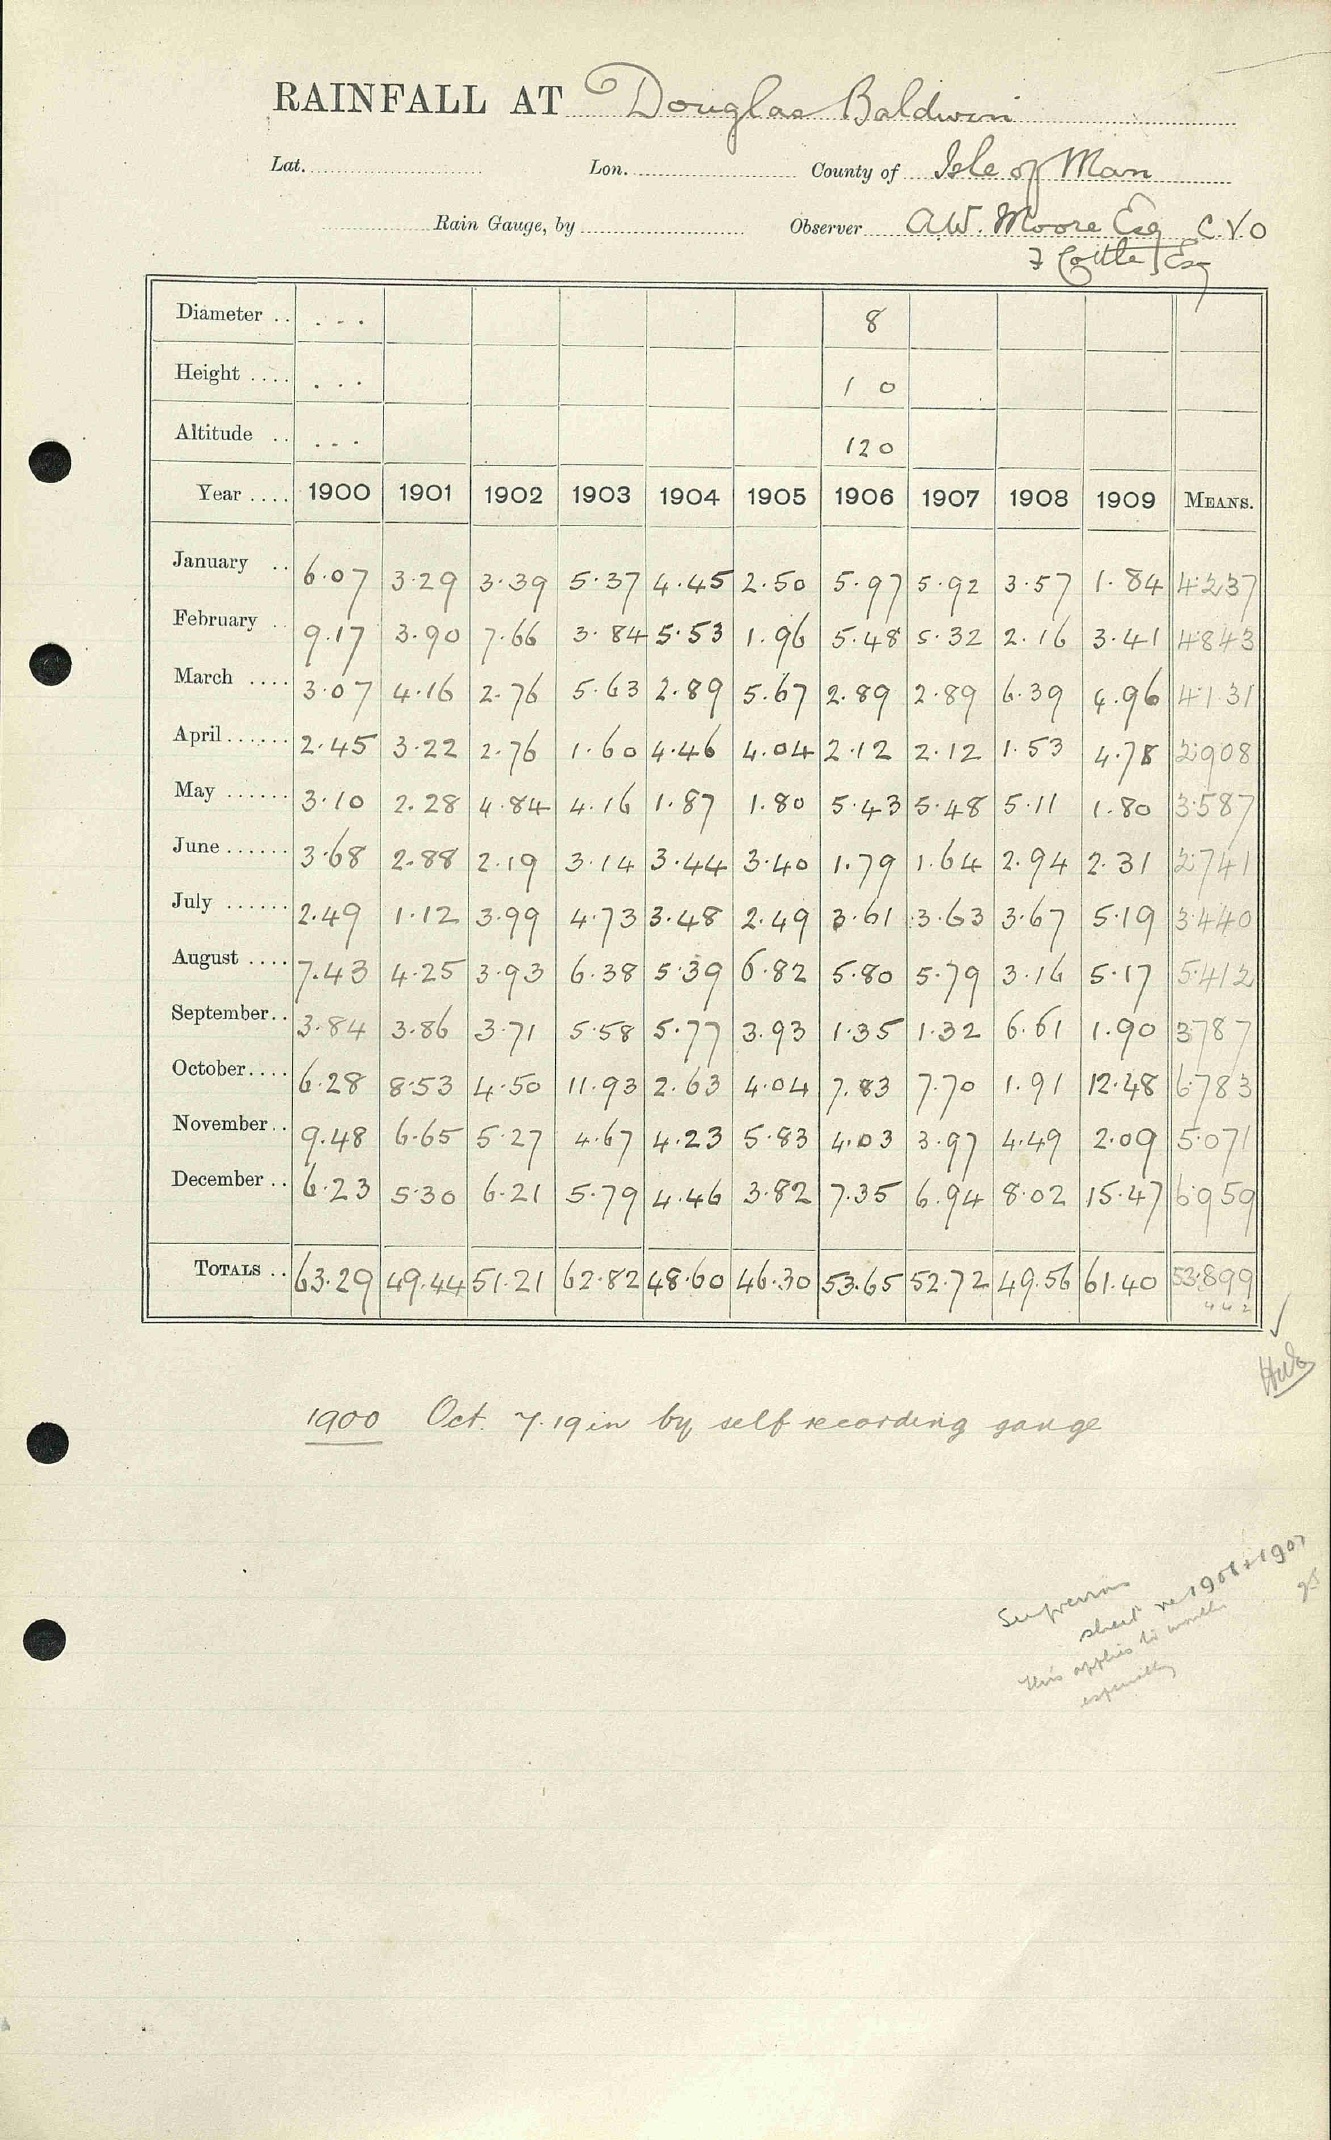 RAINFALL AT Douglas Baldwin
Lat. Lon. County of Isle of Man
Rain Gauge, by Observer A.W. Moore Esq C.V.O
F Cottle Esq
Diameter .. . . . 8
Height .... . . . 1 0
Altitude .. . . . 120
Year .... 1900 1901 1902 1903 1904 1905 1906 1907 1908 1909 MEANS.
January .. 6.07 3.29 3.39 5.37 4.45 2.50 5.97 5.92 3.57 1.84 4.237
February .. 9.17 3.90 7.66 3.84 5.53 1.96 5.48 5.32 2.16 3.41 4.843
March .... 3.07 4.16 2.76 5.63 2.89 5.67 2.89 2.89 6.39 4.96 4.131
April...... 2.45 3.22 2.76 1.60 4.46 4.04 2.12 2.12 1.53 4.78 2.908
May ...... 3.10 2.28 4.84 4.16 1.87 1.80 5.43 5.48 5.11 1.80 3.587
June ...... 3.68 2.88 2.19 3.14 3.44 3.40 1.79 1.64 2.94 2.31 2.741
July ...... 2.49 1.12 3.99 4.73 3.48 2.49 3.61 3.63 3.67 5.19 3.440
August .... 7.43 4.25 3.93 6.38 5.39 6.82 5.80 5.79 3.16 5.17 5.412
September.. 3.84 3.86 3.71 5.58 5.77 3.93 1.35 1.32 6.61 1.90 3787
October.... 6.28 8.53 4.50 11.93 2.63 4.04 7.83 7.70 1.91 12.48 6.783
November.. 9.48 6.65 5.27 4.67 4.23 5.83 4.03 3.97 4.49 2.09 5.071
December .. 6.23 5.30 6.21 5.79 4.46 3.82 7.35 6.94 8.02 15.47 6.959
TOTALS .. 63.29 49.44 51.21 62.82 48.60 46.30 53.65 52.72 49.56 61.40 53.899
4 4 2
1900 Oct. 7.19 in by self recording gauge
sheet re 1908 + 1907
this applies to months
especially